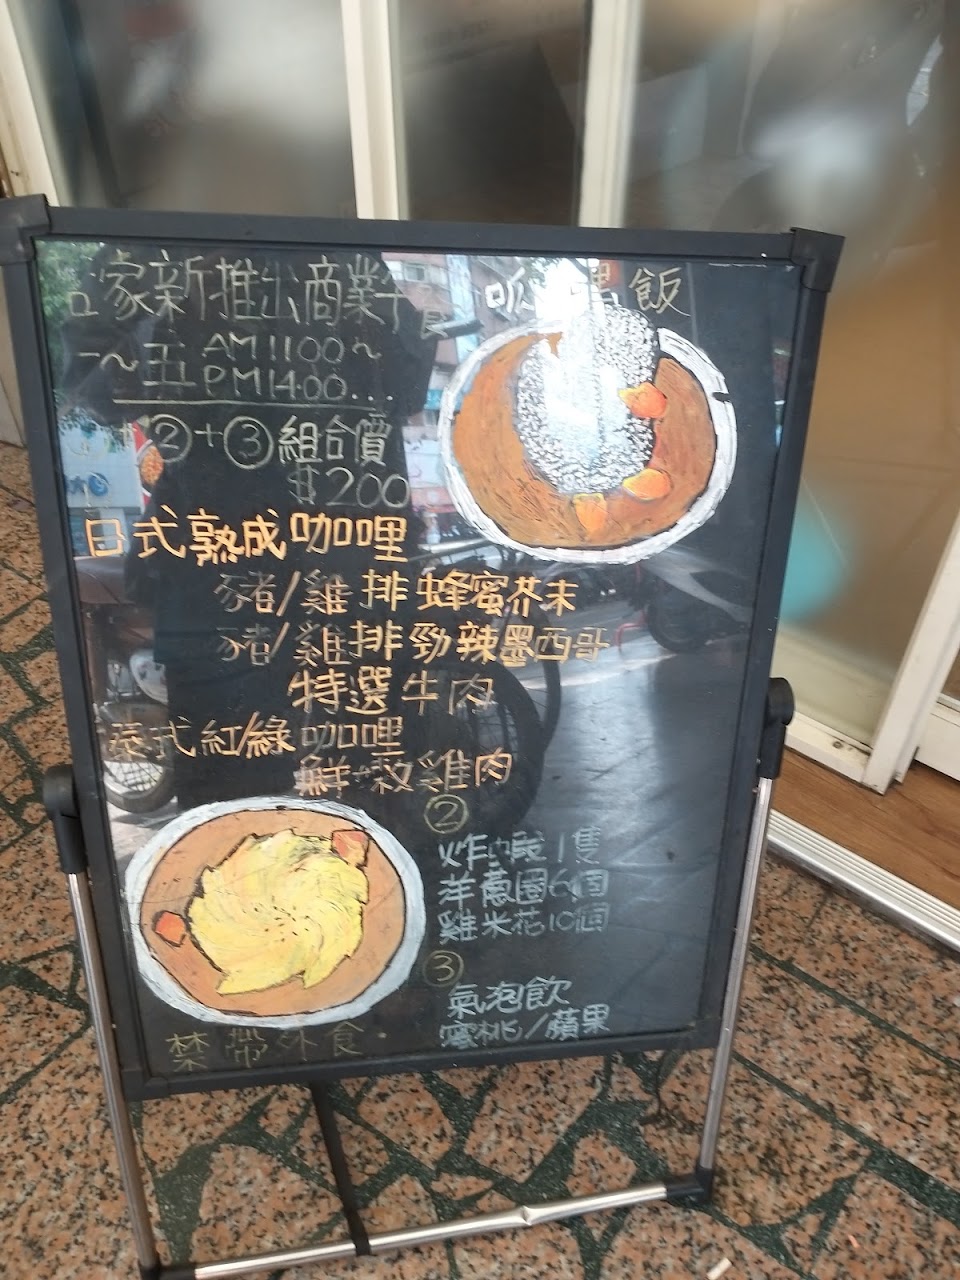 家新推出商業午 咖哩飯
一～五 AM11:00～
PM14:00...
+②+③組合價
$200
日式熟成咖哩
豬/雞排蜂蜜芥末
豬/雞排勁辣墨西哥
特選牛肉
泰式紅/綠咖哩
鮮 雞肉
②
炸蝦1隻
洋蔥圈6個
雞米花10個
③
氣泡飲
蜜桃/蘋果
禁帶外食.